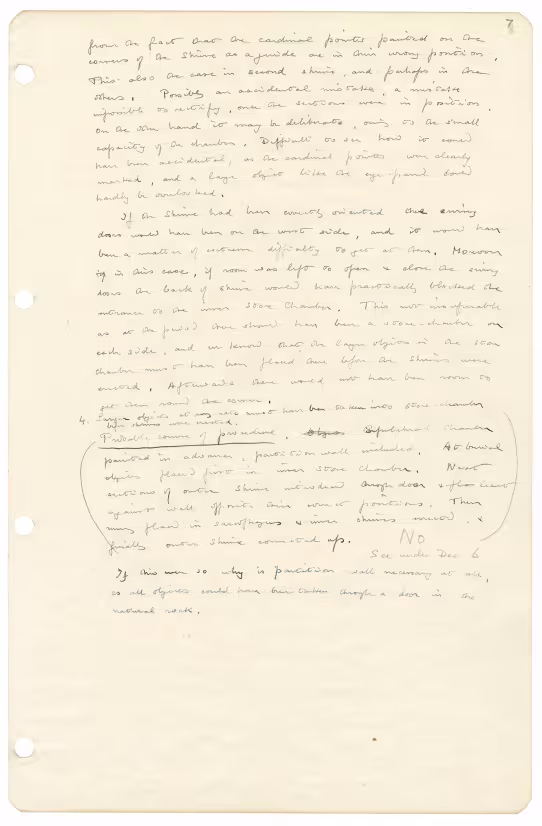 7
from the fact that the cardinal points painted on the
corners of the shrine as a guide are in their wrong positions.
This also the case in second shrine, and perhaps in the
others. Possibly an accidental mistake, a mistake
impossible to rectify, once the sections were in position.
On the other hand it may be deliberate, owing to the small
capacity of the chamber. Difficult to see how it could
have been accidental, as the cardinal points were clearly
marked, and a large object like the eye-panel could
hardly be overlooked.
If the shrine had been correctly oriented the swing
doors would have been on the west side, and it would have
been a matter of extreme difficulty to get at them. Moreover
in this case, if room was left to open & close the swing
doors the back of shrine would have practically blocked the
entrance to the inner store chamber. This not insuperable
as at the period there should have been a store-chamber on
each side, and we know that the larger objects in the store
chamber must have been placed there before the shrines were
erected. Afterwards there would not have been room to
get them round the corner.
4. Larger objects at any rate must have been taken into store-chamber
before shrines were erected.
Probable course of procedure. Sepulchral chamber
painted in advance, partition wall included. At burial
objects placed first in inner store chamber. Next
sections of outer shrine introduced through door &
against wall opposite their correct positions. Then
mummy placed in sarcophagus & inner shrines erected, &
finally outer shrine connected up.
No
See under Dec 6
If this were so why is partition wall necessary at all,
as all objects could have been taken through a door in the
natural rock.